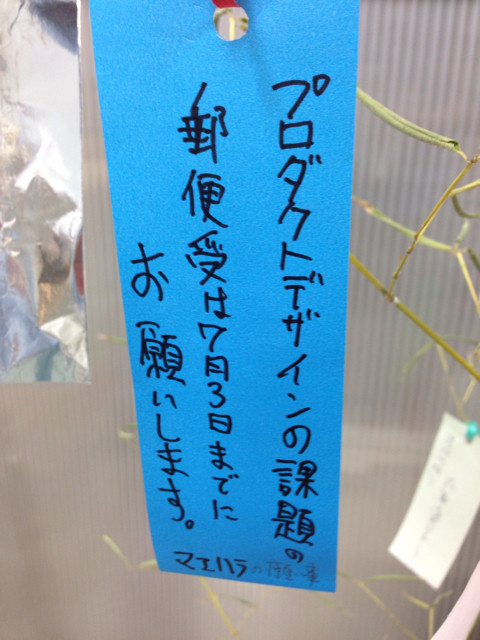 プロダクトデザインの課題の
郵便受は7月3日までに
お願いします。
マエハラの願い事